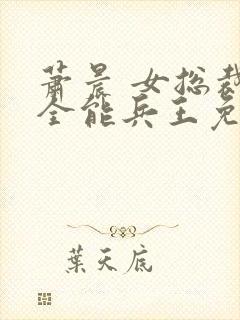 萧晨 女总裁
全能兵王免
葉天底